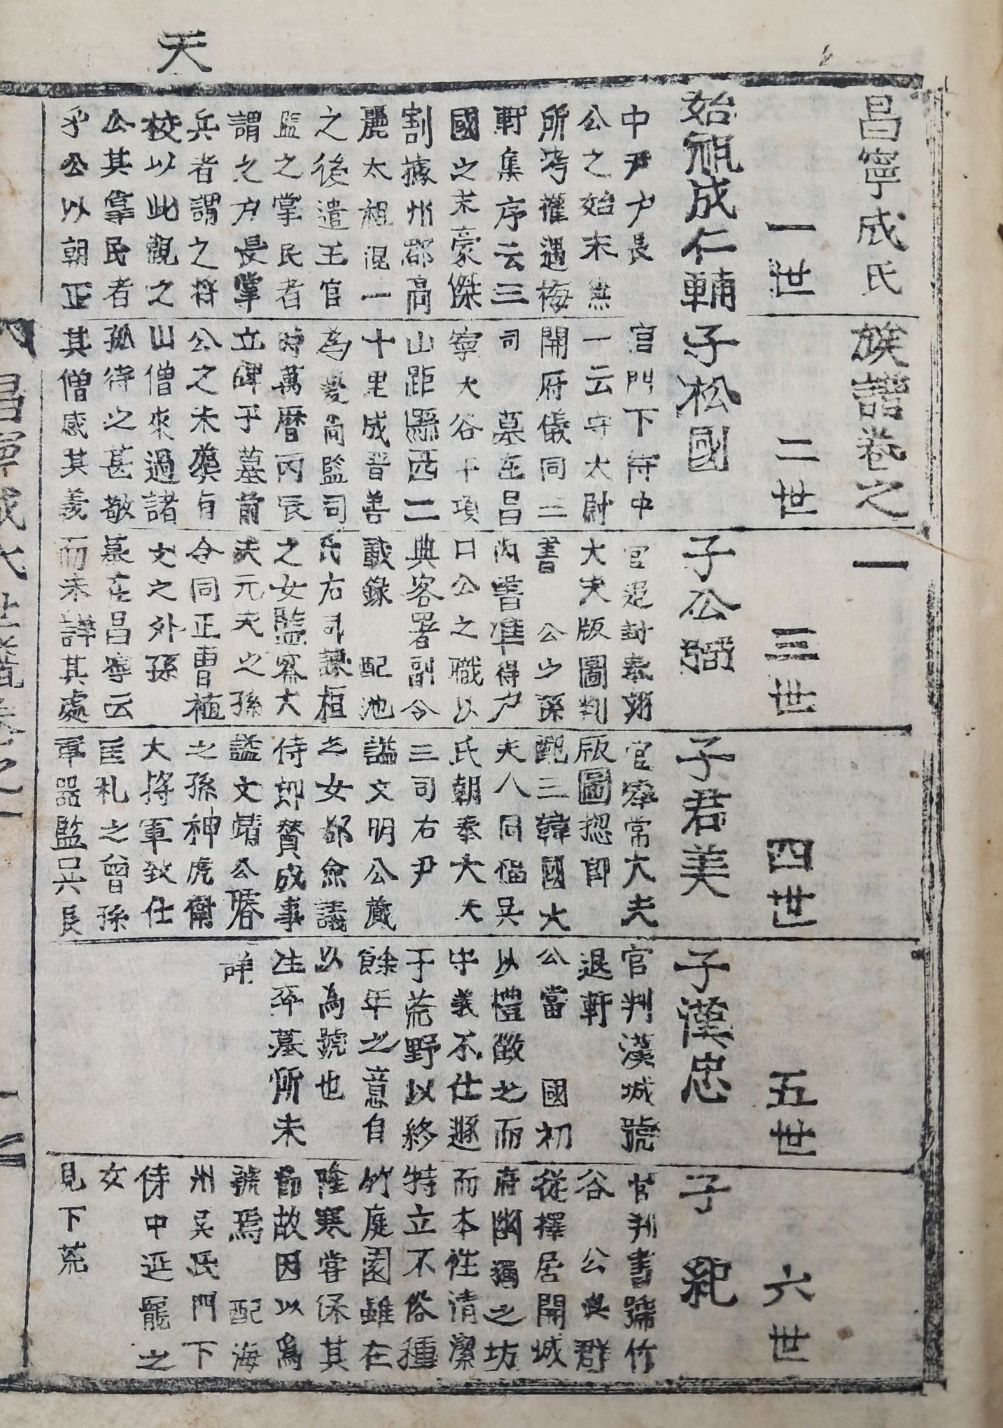 天
昌寧成氏族譜卷之一
一世
始祖成仁輔
中尹戶長
公之始末無
所考權遇梅
軒集序云三
國之末豪傑
割據州郡高
麗太祖混一
之後遣王官
監之掌民者
謂之戶長掌
兵者謂之將
校以此觀之
公其掌民者
乎公以朝正
二世
子松國
官門下侍中
一云守太尉
開府儀同三
司 墓在昌
寧大谷干項
山距縣西二
十里成晋善
為慶尙監司
時萬曆丙辰
立碑于墓前
公之未塟有
山僧來過諸
孤待之甚敬
其僧感其義
三世
子公弼
官追封奉翊
大夫版圖判
書 公之孫
內書準得戶
口公之職以
典客署副令
載錄 配池
氏右司諫桓
之女監察大
夫元夫之孫
令同正曹植
文之外孫
墓在昌寧云
而未詳其處
四世
子君美
官奉常大夫
版圖摠郎
配三韓國大
夫人同福吳
氏朝奉大夫
三司右尹
謚文明公蕆
之女都僉議
侍郎贊成事
謚文靖公璿
之孫神虎衛
大將軍致仕
匡札之曾孫
軍器監吳長
五世
子漢忠
官判漢城號
退軒
公當 國初
以禮徵之而
守義不仕遯
于荒野以終
餘年之意自
以為號也
生卒墓所未
詳
六世
子 紀
官判書號竹
谷 公與群
從擇居開城
府幽獨之坊
而本性清潔
特立不俗種
竹庭園雖在
隆寒嘗保其
節故因以爲
號焉 配海
州吳氏門下
侍中延寵之
女
見下荒